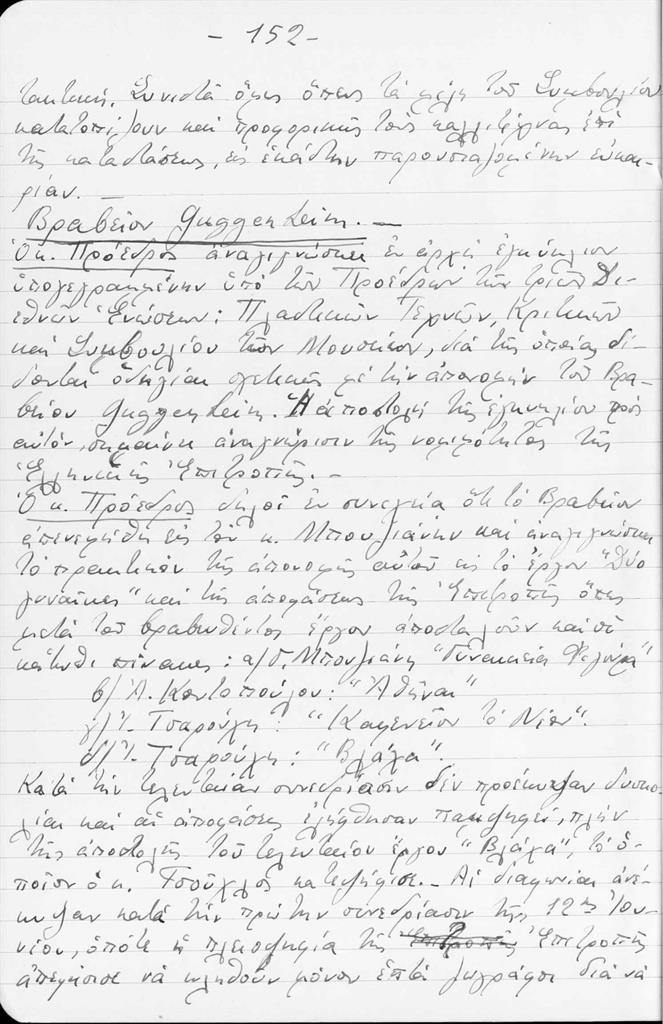 - 152 -
τακτική. Συνιστᾶ ὅμως ὅπως τὰ μέλη τοῦ Συμβουλίου
κατατοπίζουν καὶ προφορικῶς τοὺς καλλιτέχνας ἐπὶ
τῆς καταστάσεως, εἰς ἑκάστην παρουσιαζομένην εὐκαι-
ρίαν. —
Βραβεῖον Guggenheim. —
Ὁ κ. Πρόεδρος ἀναγιγνώσκει ἐν ἀρχῇ ἐγκύκλιον
ὑπογεγραμμένην ὑπὸ τῶν Προέδρων τῶν τριῶν Δι-
εθνῶν Ἑνώσεων: Πλαστικῶν Τεχνῶν, Κριτικῶν
καὶ Συμβουλίου τῶν Μουσείων, διὰ τῆς ὁποίας δί-
δονται ὁδηγίαι σχετικῶς μὲ τὴν ἀπονομὴν τοῦ Βρα-
βείου Guggenheim. Ἡ ἀποστολὴ τῆς ἐγκυκλίου πρὸς
αὐτόν, σημαίνει ἀναγνώρισιν τῆς νομιμότητος τῆς
Ἑλληνικῆς Ἐπιτροπῆς. —
Ὁ κ. Πρόεδρος δηλοῖ ἐν συνεχείᾳ ὅτι τὸ Βραβεῖον
ἀπενεμήθη εἰς τὸν κ. Μπουζιάνην καὶ ἀναγιγνώσκει
τὸ πρακτικὸν τῆς ἀπονομῆς αὐτοῦ εἰς τὸ ἔργον "Δύο
γυναῖκες" καὶ τῆς ἀποφάσεως τῆς Ἐπιτροπῆς ὅπως
μετὰ τοῦ βραβευθέντος ἔργου ἀποσταλοῦν καὶ οἱ
κάτωθι πίνακες: α/ Γ. Μπουζιάνη "Γυναικεία Φιγούρα"
β/ Ἀ. Κοντοπούλου: "Ἀθῆναι"
γ/ Ἰ. Τσαρούχη: "Καφενεῖον τὸ Νέον".
δ/ Ἰ. Τσαρούχη: "Βλάχα".
Κατὰ τὴν τελευταίαν συνεδρίασιν δὲν προέκυψαν δυσκο-
λίαι καὶ αἱ ἀποφάσεις ἐλήφθησαν παμψηφεί, πλὴν
τῆς ἀποστολῆς τοῦ τελευταίου ἔργου "Βλάχα", τὸ ὁ-
ποῖον ὁ κ. Τσούχλος κατεψήφισε. — Αἱ διαφωνίαι ἀνέ-
κυψαν κατὰ τὴν πρώτην συνεδρίασιν τῆς 12ης Ἰου-
νίου, ὁπότε ἡ πλειοψηφία τῆς Ἐπιτροπῆς
ἀπεφάσισε νὰ κληθοῦν μόνον ἑπτὰ ζωγράφοι διὰ νὰ